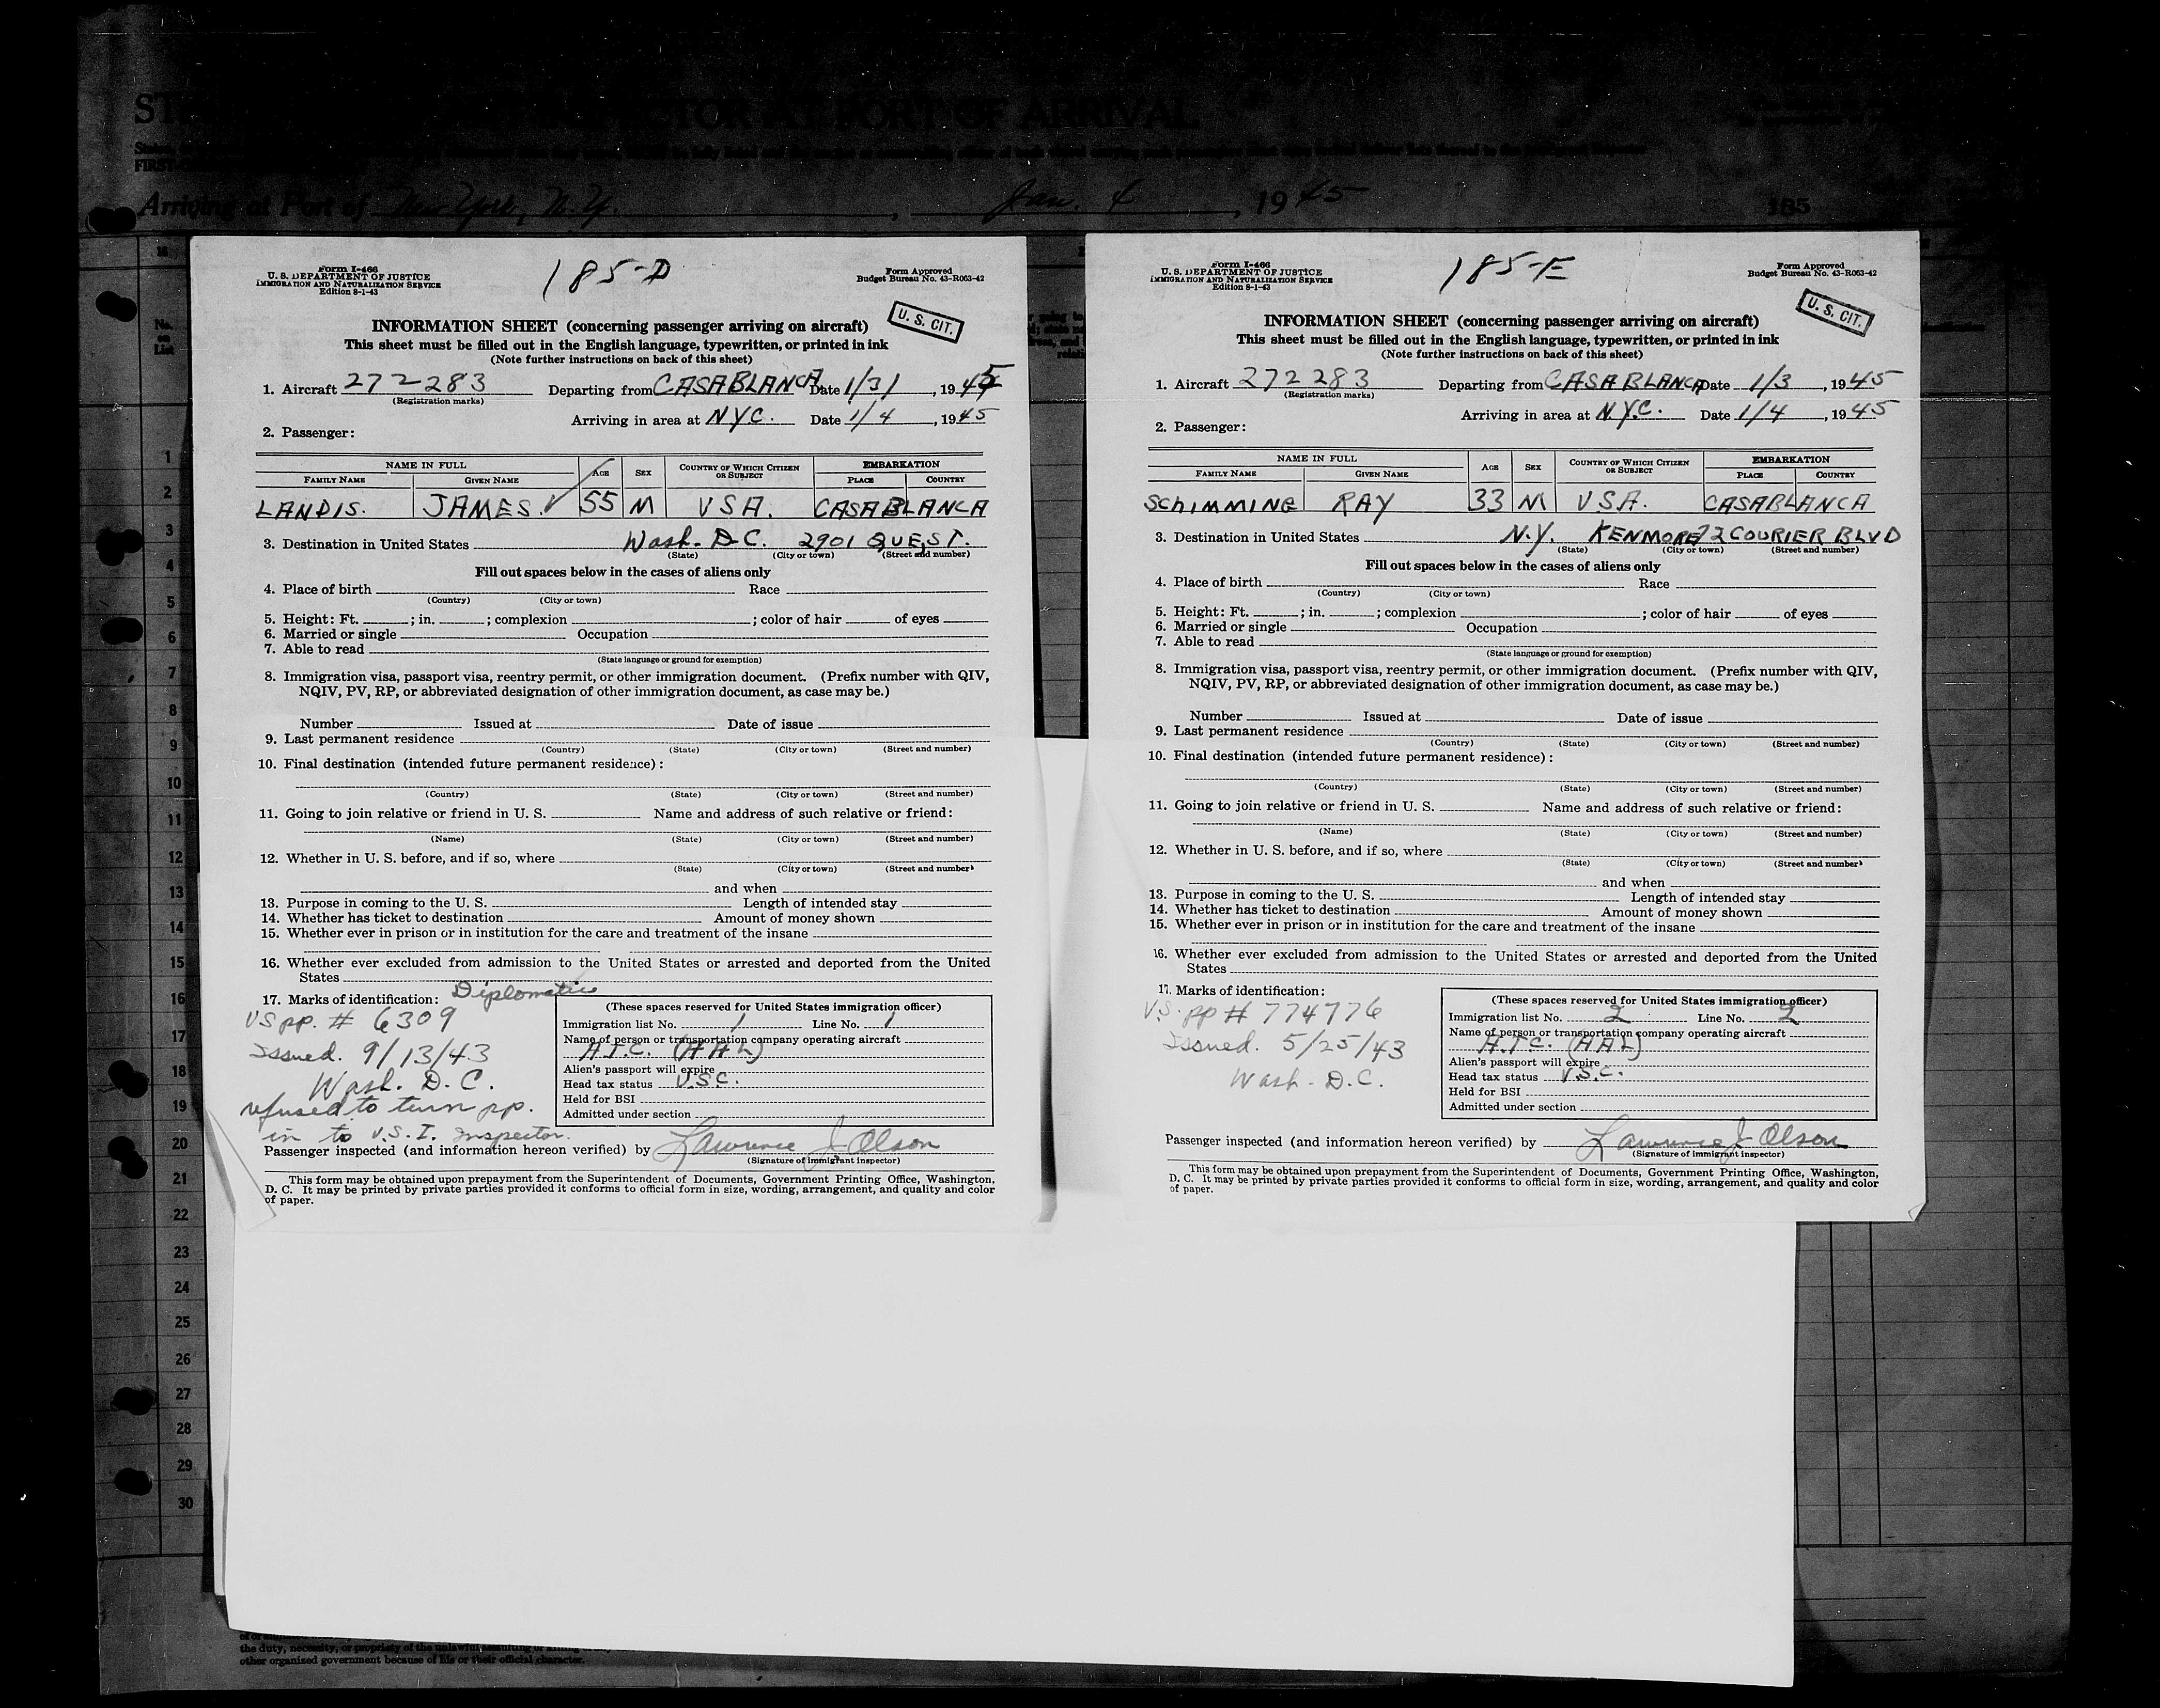 ARRIVAL
Arriving at Port of New York, N.Y. , Jan. 4 , 19 45
185
No. on List
1
2
3
4
5
6
7
8
9
10
11
12
13
14
15
16
17
18
19
20
21
22
23
24
25
26
27
28
29
30
Form I-466
U. S. DEPARTMENT OF JUSTICE
IMMIGRATION AND NATURALIZATION SERVICE
Edition 8-1-43
185-D
Form Approved
Budget Bureau No. 43-R063-42
U. S. CIT.
INFORMATION SHEET (concerning passenger arriving on aircraft)
This sheet must be filled out in the English language, typewritten, or printed in ink
(Note further instructions on back of this sheet)
1. Aircraft 272283 Departing from CASABLANCA Date 1/3/ , 1945
(Registration marks)
Arriving in area at NYC. Date 1/4 , 1945
2. Passenger:
NAME IN FULL AGE SEX COUNTRY OF WHICH CITIZEN OR SUBJECT EMBARKATION
FAMILY NAME GIVEN NAME PLACE COUNTRY
LANDIS. JAMES. 55 M USA. CASABLANCA
3. Destination in United States Wash. D.C. 2901 QUE, ST.
(State) (City or town) (Street and number)
Fill out spaces below in the cases of aliens only
4. Place of birth Race
(Country) (City or town)
5. Height: Ft. ; in. ; complexion ; color of hair of eyes
6. Married or single Occupation
7. Able to read
(State language or ground for exemption)
8. Immigration visa, passport visa, reentry permit, or other immigration document. (Prefix number with QIV,
NQIV, PV, RP, or abbreviated designation of other immigration document, as case may be.)
Number Issued at Date of issue
9. Last permanent residence
(Country) (State) (City or town) (Street and number)
10. Final destination (intended future permanent residence):
(Country) (State) (City or town) (Street and number)
11. Going to join relative or friend in U. S. Name and address of such relative or friend:
(Name) (State) (City or town) (Street and number)
12. Whether in U. S. before, and if so, where
(State) (City or town) (Street and number)
and when
13. Purpose in coming to the U. S. Length of intended stay
14. Whether has ticket to destination Amount of money shown
15. Whether ever in prison or in institution for the care and treatment of the insane
16. Whether ever excluded from admission to the United States or arrested and deported from the United
States
17. Marks of identification: Diplomatic
US pp. # 6309
Issued. 9/13/43
Wash. D.C.
refused to turn pp.
in to U.S.I. Inspector.
(These spaces reserved for United States immigration officer)
Immigration list No. 1 Line No. 1
Name of person or transportation company operating aircraft
A.T.C. (AAL)
Alien's passport will expire
Head tax status U.S.C.
Held for BSI
Admitted under section
Passenger inspected (and information hereon verified) by Lawrence J Olson
(Signature of immigrant inspector)
This form may be obtained upon prepayment from the Superintendent of Documents, Government Printing Office, Washington,
D. C. It may be printed by private parties provided it conforms to official form in size, wording, arrangement, and quality and color
of paper.
Form I-466
U. S. DEPARTMENT OF JUSTICE
IMMIGRATION AND NATURALIZATION SERVICE
Edition 8-1-43
185-E
Form Approved
Budget Bureau No. 43-R063-42
U. S. CIT.
INFORMATION SHEET (concerning passenger arriving on aircraft)
This sheet must be filled out in the English language, typewritten, or printed in ink
(Note further instructions on back of this sheet)
1. Aircraft 272283 Departing from CASABLANCA Date 1/3 , 1945
(Registration marks)
Arriving in area at N.Y.C. Date 1/4 , 1945
2. Passenger:
NAME IN FULL AGE SEX COUNTRY OF WHICH CITIZEN OR SUBJECT EMBARKATION
FAMILY NAME GIVEN NAME PLACE COUNTRY
SChIMMING RAY 33 M USA. CASABLANCA
3. Destination in United States N.Y. KENMORE 72 COURIER BLVD
(State) (City or town) (Street and number)
Fill out spaces below in the cases of aliens only
4. Place of birth Race
(Country) (City or town)
5. Height: Ft. ; in. ; complexion ; color of hair of eyes
6. Married or single Occupation
7. Able to read
(State language or ground for exemption)
8. Immigration visa, passport visa, reentry permit, or other immigration document. (Prefix number with QIV,
NQIV, PV, RP, or abbreviated designation of other immigration document, as case may be.)
Number Issued at Date of issue
9. Last permanent residence
(Country) (State) (City or town) (Street and number)
10. Final destination (intended future permanent residence):
(Country) (State) (City or town) (Street and number)
11. Going to join relative or friend in U. S. Name and address of such relative or friend:
(Name) (State) (City or town) (Street and number)
12. Whether in U. S. before, and if so, where
(State) (City or town) (Street and number)
and when
13. Purpose in coming to the U. S. Length of intended stay
14. Whether has ticket to destination Amount of money shown
15. Whether ever in prison or in institution for the care and treatment of the insane
16. Whether ever excluded from admission to the United States or arrested and deported from the United
States
17. Marks of identification:
U.S. pp # 774776
Issued. 5/25/43
Wash. D.C.
(These spaces reserved for United States immigration officer)
Immigration list No. 2 Line No. 2
Name of person or transportation company operating aircraft
A.T.C. (AAL)
Alien's passport will expire
Head tax status U.S.C.
Held for BSI
Admitted under section
Passenger inspected (and information hereon verified) by Lawrence J Olson
(Signature of immigrant inspector)
This form may be obtained upon prepayment from the Superintendent of Documents, Government Printing Office, Washington,
D. C. It may be printed by private parties provided it conforms to official form in size, wording, arrangement, and quality and color
of paper.
the duty, necessity, or propriety of the unlawful assaulting or killing of
other organized government because of his or their official character.